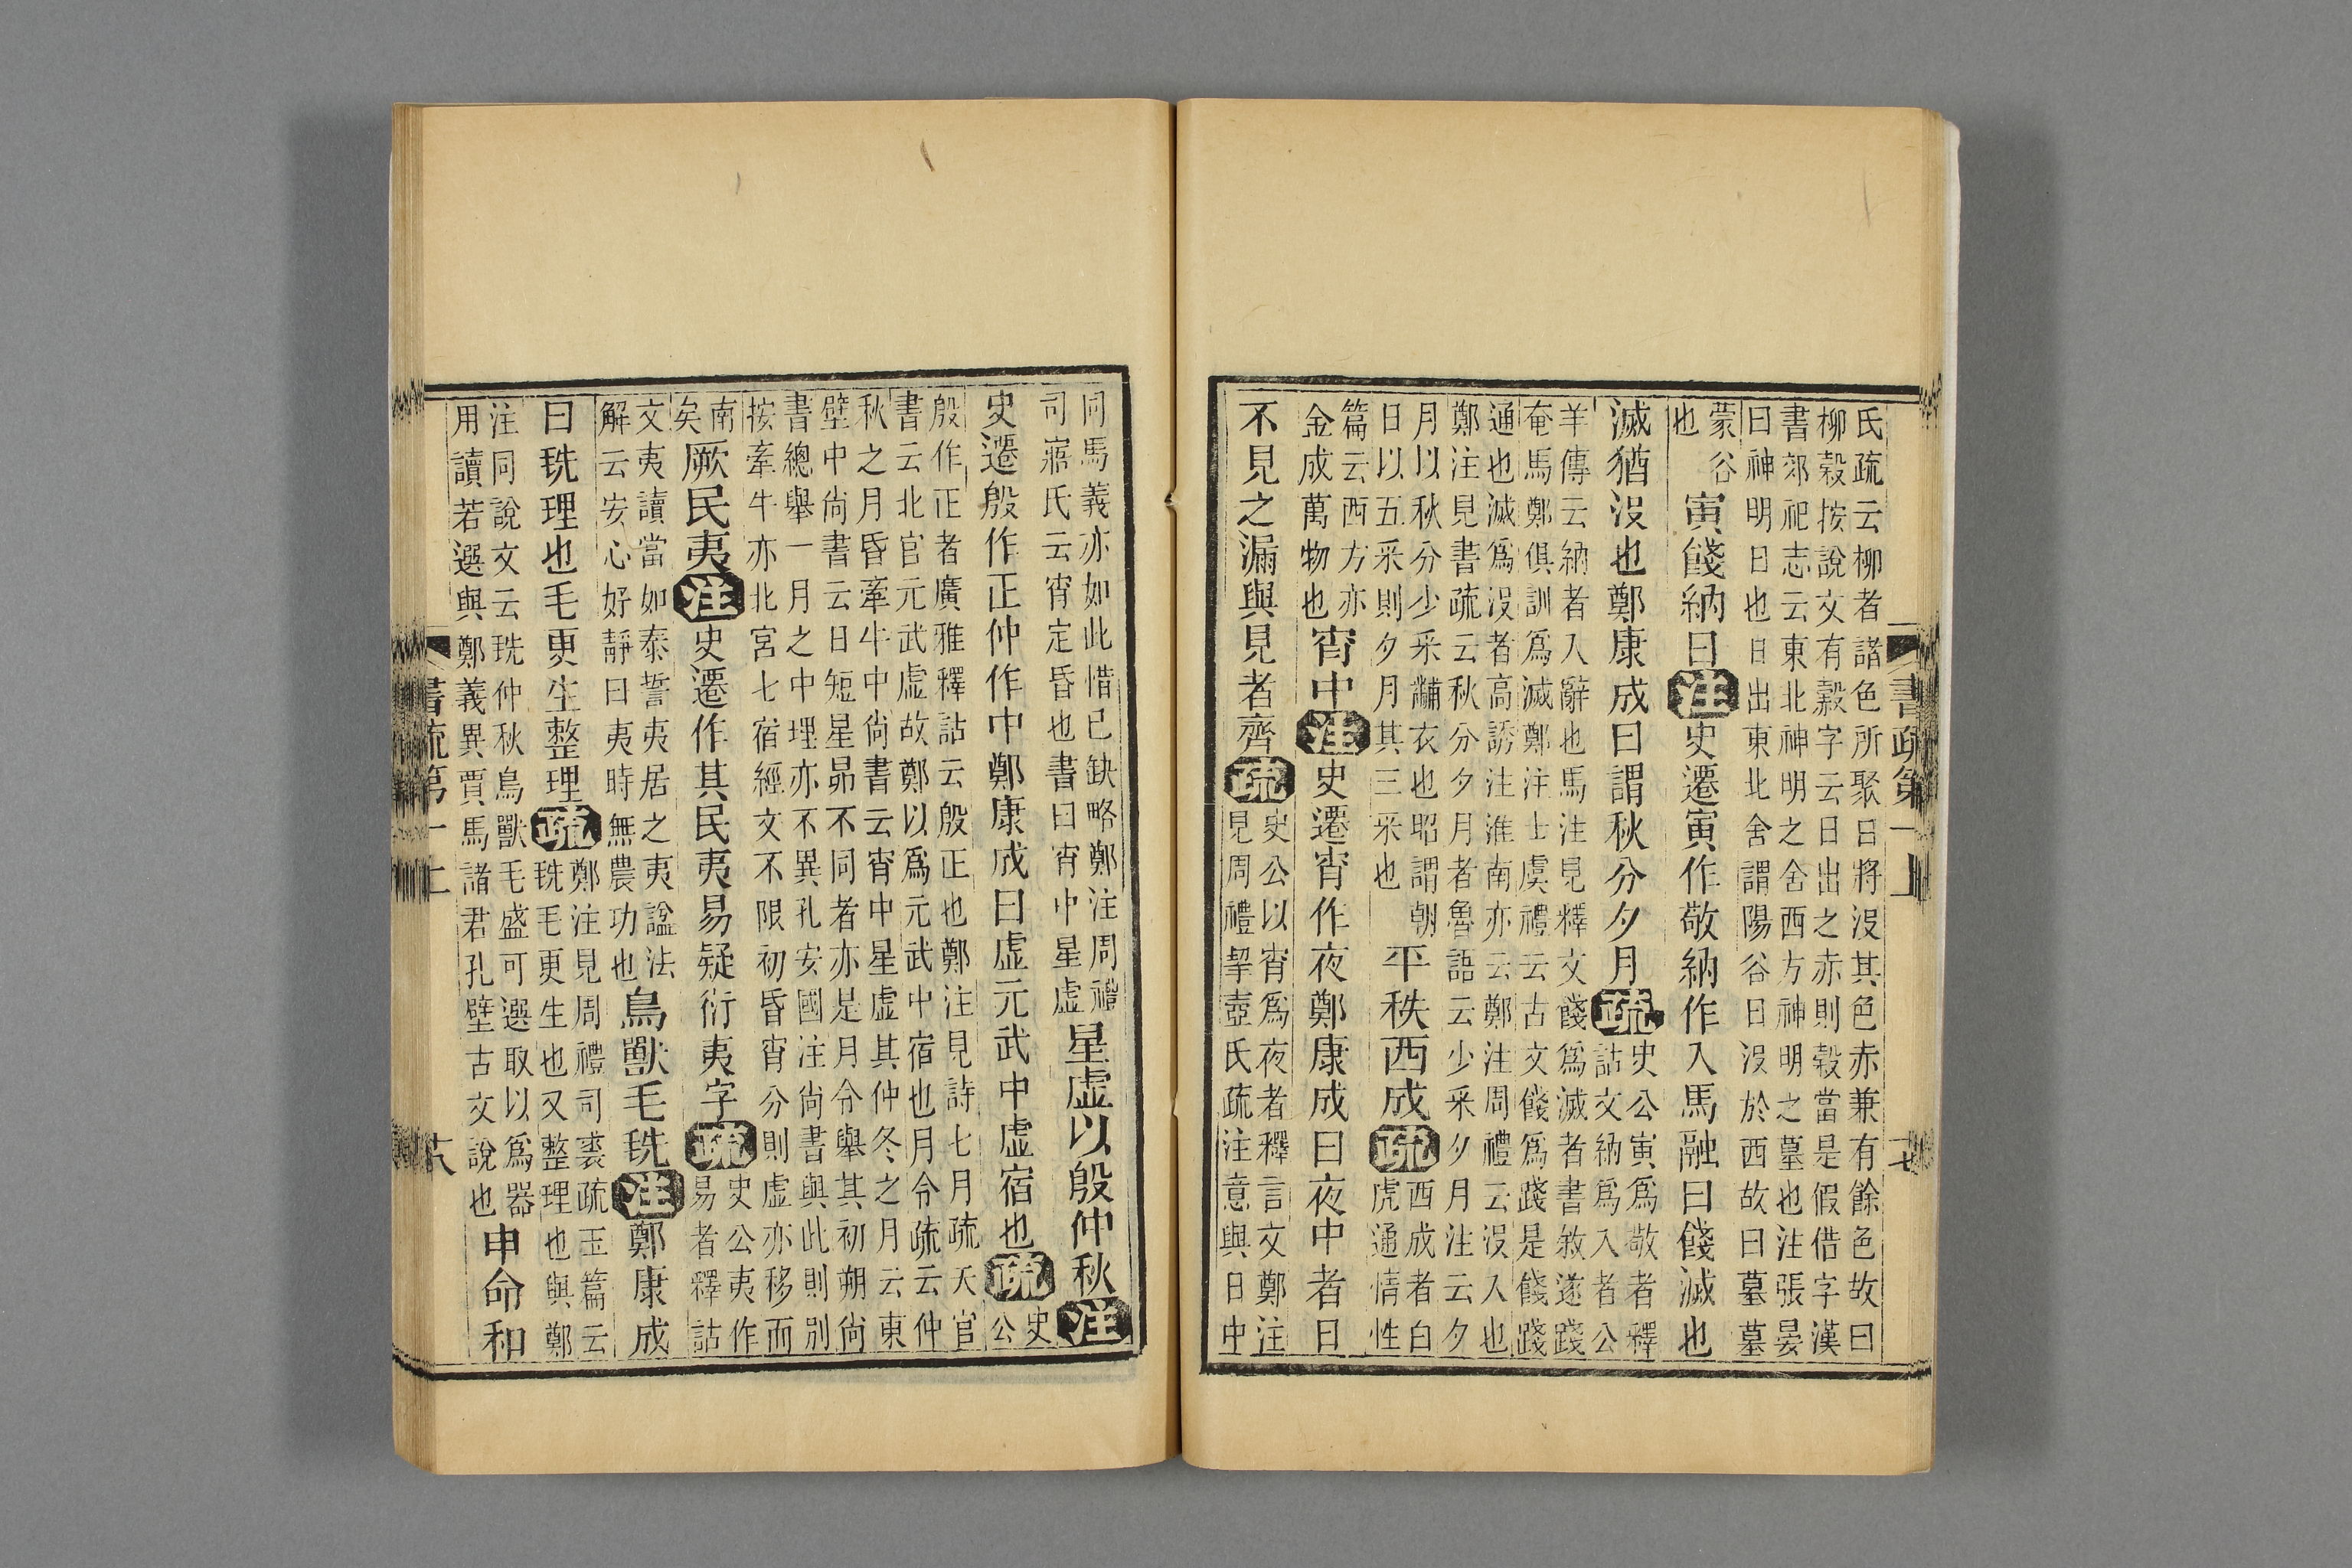 書疏第一上
十七
氏疏云柳者諸色所聚日將沒其色赤兼有餘色故曰
柳穀按說文有㝅字云日出之赤則穀當是假借字漢
書郊祀志云東北神明之舍西方神明之墓也注張晏
曰神明日也日出東北舍謂陽谷日沒於西故曰墓墓
蒙谷
也
寅餞納日注史遷寅作敬納作入馬融曰餞滅也
滅猶沒也鄭康成曰謂秋分夕月疏
史公寅爲敬者釋
詁文納爲入者公
羊傳云納者入辭也馬注見釋文餞爲滅者書敘遂踐
奄馬鄭俱訓爲滅鄭注士虞禮云古文餞爲踐是餞踐
通也滅爲沒者高誘注淮南亦云鄭注周禮云沒入也
鄭注見書疏云秋分夕月者魯語云少采夕月注云夕
月以秋分少采黼衣也昭謂朝
日以五采則夕月其三采也
平秩西成疏
西成者白
虎通情性
篇云西方亦
金成萬物也
宵中注史遷宵作夜鄭康成曰夜中者日
不見之漏與見者齊疏
史公以宵爲夜者釋言文鄭注
見周禮挈壺氏疏注意與日中
同馬義亦如此惜已缺略鄭注周禮
司寤氏云宵定昏也書曰宵中星虛
星虛以殷仲秋注
史遷殷作正仲作中鄭康成曰虛元武中虛宿也疏
史
公
殷作正者廣雅釋詁云殷正也鄭注見詩七月疏天官
書云北官元武虛故鄭以爲元武中宿也月令疏云仲
秋之月昏牽牛中尙書云宵中星虛其仲冬之月云東
壁中尙書云日短星昴不同者亦是月令舉其初朔尙
書總舉一月之中理亦不異孔安國注尙書與此則別
按牽牛亦北宮七宿經文不限初昏宵分則虛亦移而
南
矣
厥民夷注史遷作其民夷易疑衍夷字疏
史公夷作
易者釋詁
文夷讀當如泰誓夷居之夷諡法
解云安心好靜曰夷時無農功也
鳥獸毛毨注鄭康成
曰毨理也毛更生整理疏
鄭注見周禮司裘疏玉篇云
毨毛更生也又整理也與鄭
注同說文云毨仲秋鳥獸毛盛可選取以爲器
用讀若選與鄭義異賈馬諸君孔壁古文說也
申命和
書疏第一上
十八